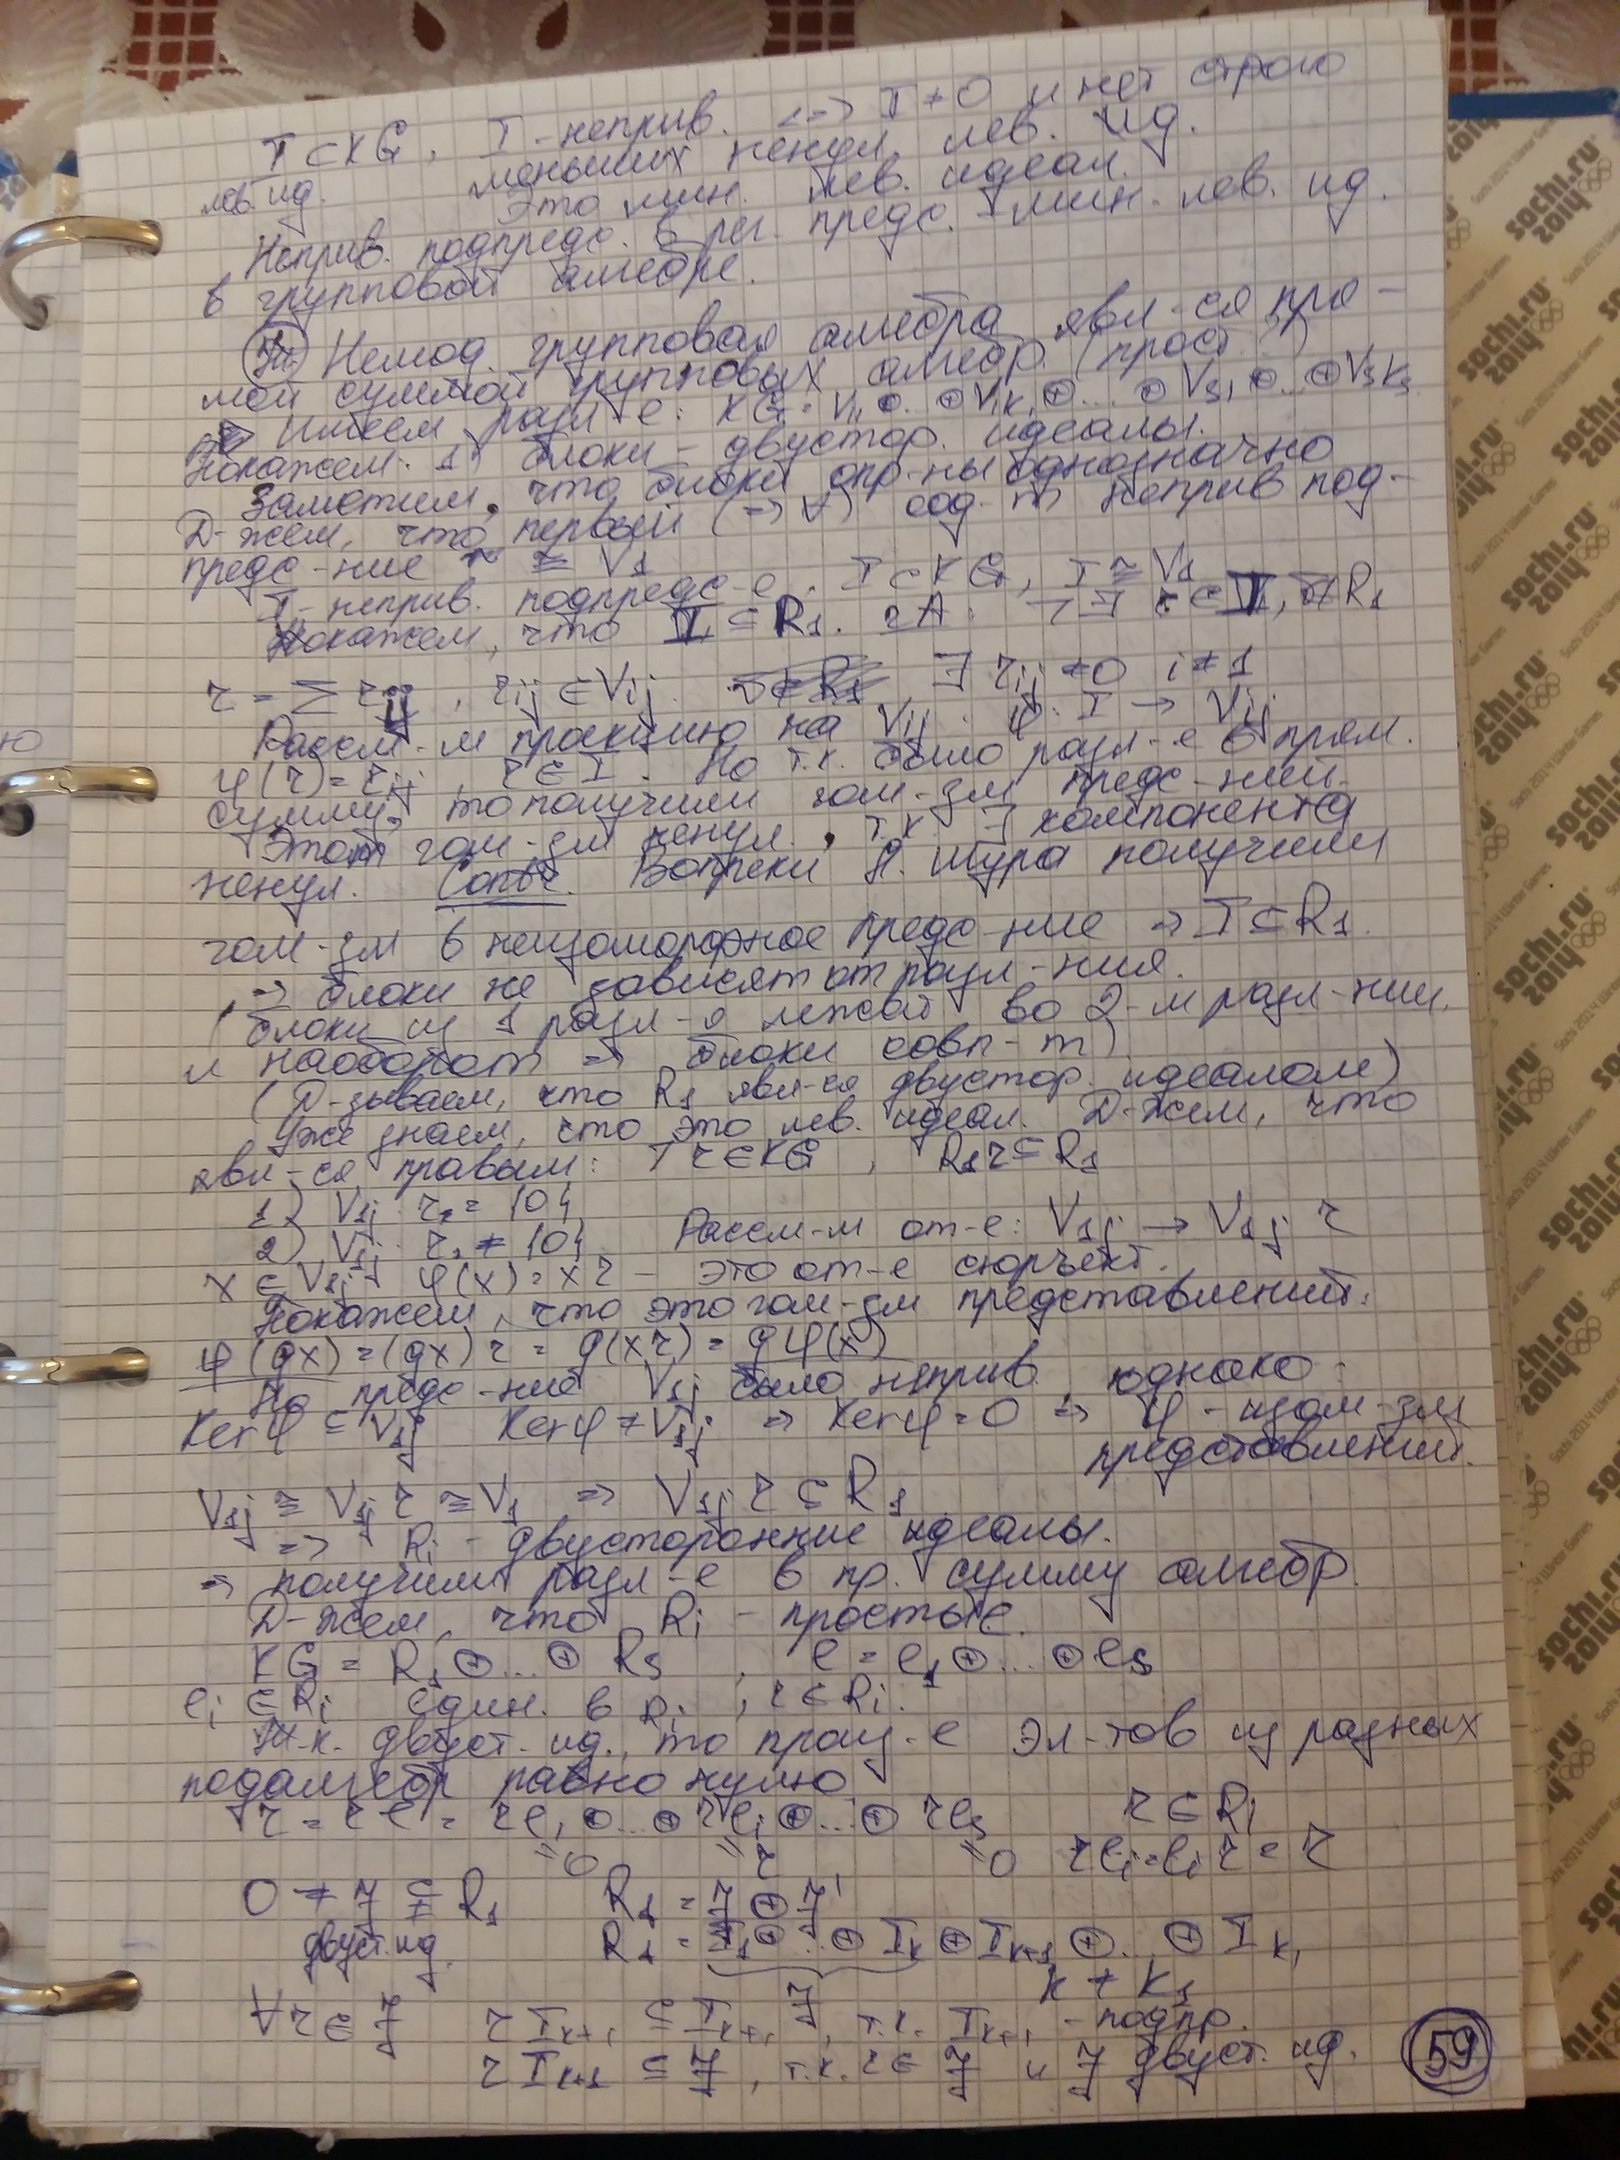 I ⊂ KG, I - неприв. <=> I ≠ 0 и нет строго
лев. ид. меньших ненул. лев. ид.
Это мин. лев. идеал.
Неприв. подпредс. в рег. предс. - мин. лев. ид.
в групповой алгебре.
Немод. групповая алгебра явл-ся пря-
мой суммой групповых алгебр (прост. ?)
Имеем разл-е: KG = V₁₁ ⊕ ... ⊕ V₁k₁ ⊕ ... ⊕ Vs₁ ⊕ ... ⊕ Vsks
Покажем: 1) блоки - двустор. идеалы.
Заметим, что блоки опр-ны однозначно
Д-жем, что первый (=> ∀) сод. неприв под-
предс-ние ≅ V₁
I - неприв. подпредс-е. I ⊂ KG, I ≅ V₁
Покажем, что I ⊆ R₁. ∃ r ∈ I, ∉ R₁
r = Σ rij, rij ∈ Vij. ∃ rij ≠ 0 i ≠ 1
Рассм-м проекцию на Vij. φ: I → Vij
φ(r) = rij, r ∈ I. Но т.к. было разл-е в прям.
сумму, то получили гом-зм предс-ний.
Этот гом-зм ненул., т.к. ∃ компонента
ненул. Вопреки Л. Шура получили
гом-зм в неизоморфное предс-ние => I ⊆ R₁.
=> блоки не зависят от разл-ния.
(блоки из 1 разл-я лежат во 2-м разл-нии,
и наоборот => блоки совп-т)
(Д-зываем, что R₁ явл-ся двустор. идеалом)
Уже знаем, что это лев. идеал. Д-жем, что
явл-ся правым: r ∈ KG, R₁r ⊆ R₁
1) V₁j · r = {0}
2) V₁j · r ≠ {0} Рассм-м от-е: V₁j → V₁j r
x ∈ V₁j φ(x) = xr - это от-е сюръект.
Покажем, что это гом-зм представлений:
φ(gx) = (gx)r = g(xr) = gφ(x)
Но предс-ние V₁j было неприв. однако
Ker φ ⊆ V₁j Ker φ ≠ V₁j => Ker φ = 0 => φ - изом-зм
представлений.
V₁j ≅ V₁j r ≅ V₁ => V₁j r ⊆ R₁
=> Ri - двусторонние идеалы.
=> получили разл-е в пр. сумму алгебр.
Д-жем, что Ri - простые.
KG = R₁ ⊕ ... ⊕ Rs, e = e₁ ⊕ ... ⊕ es
ei ∈ Ri един. в Ri, r ∈ Ri.
Т.к. двуст. ид., то произ-е эл-тов из разных
подалгебр равно нулю
r = re = re₁ ⊕ ... ⊕ rei ⊕ ... ⊕ res r ∈ Ri
=0 =r =0 rei = ei r = r
0 ≠ J ⊊ R₁ R₁ = J ⊕ J'
двуст. ид. R₁ = I₁ ⊕ ... ⊕ Ik ⊕ Ik+1 ⊕ ... ⊕ Ik₁
J k ≠ k₁
∀r ∈ J r Ik+1 ⊆ Ik+1, т.к. Ik+1 - подпр.
r Ik+1 ⊆ J, т.к. r ∈ J и J двуст. ид.
59
sochi.ru
2014
Sochi 2014 Winter Games